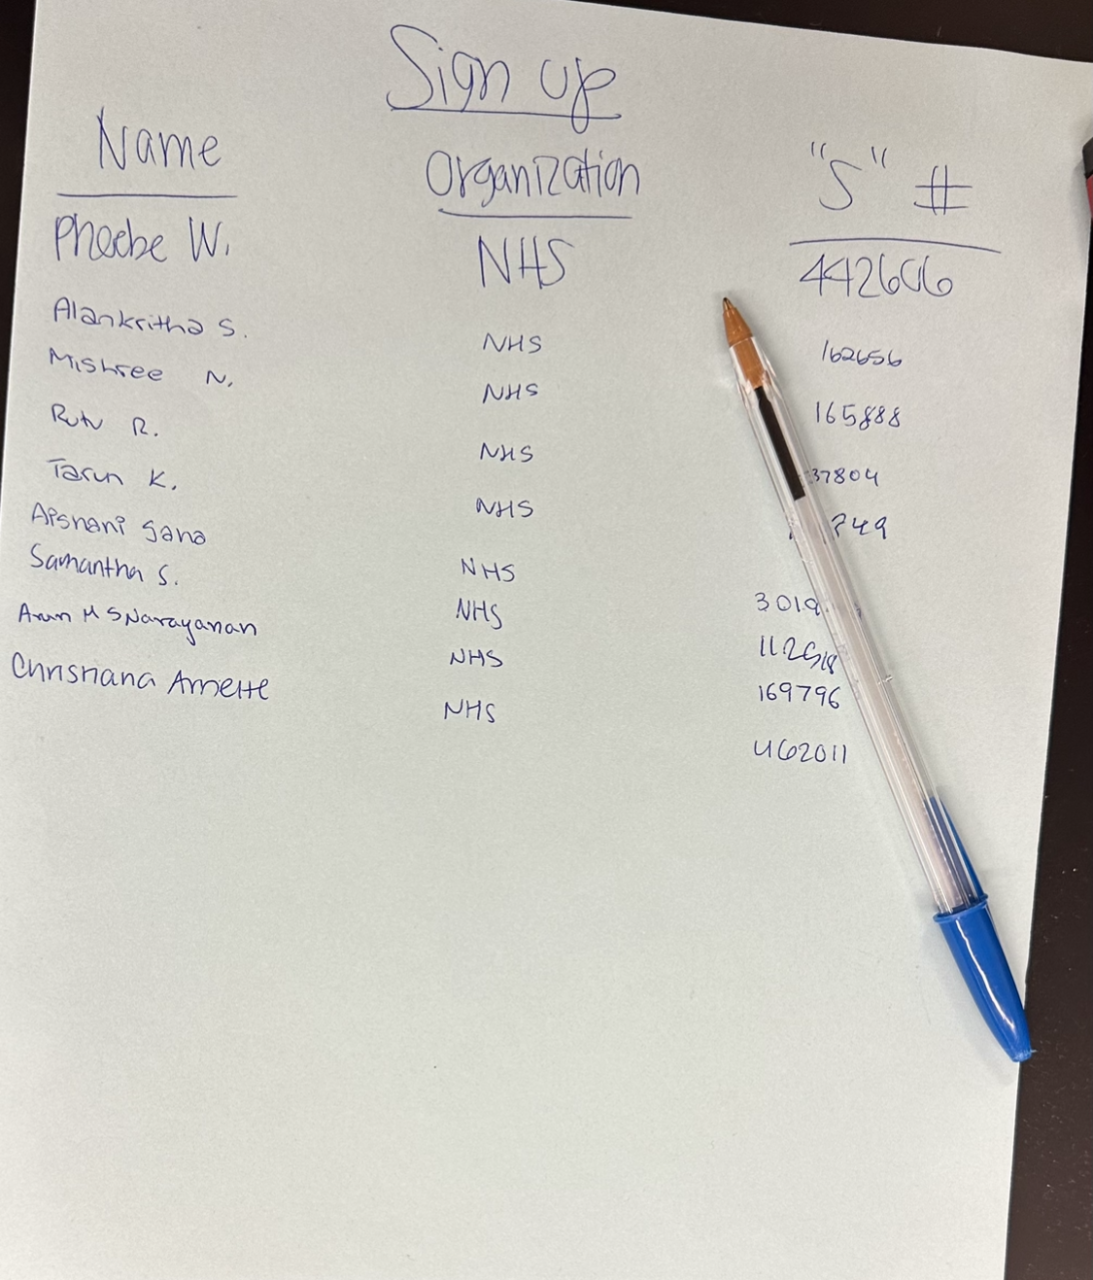 Sign up
Name Organization "S" #
Phoebe W. NHS 442606
Alankritha S. NHS 162656
Mishree N. NHS 165888
Rutv R. NHS 37804
Tarun K. NHS 249
Aishani Jana NHS 3019
Samantha S. NHS
Arun M SNarayanan NHS 169796
Christiana Arnette NHS 462011